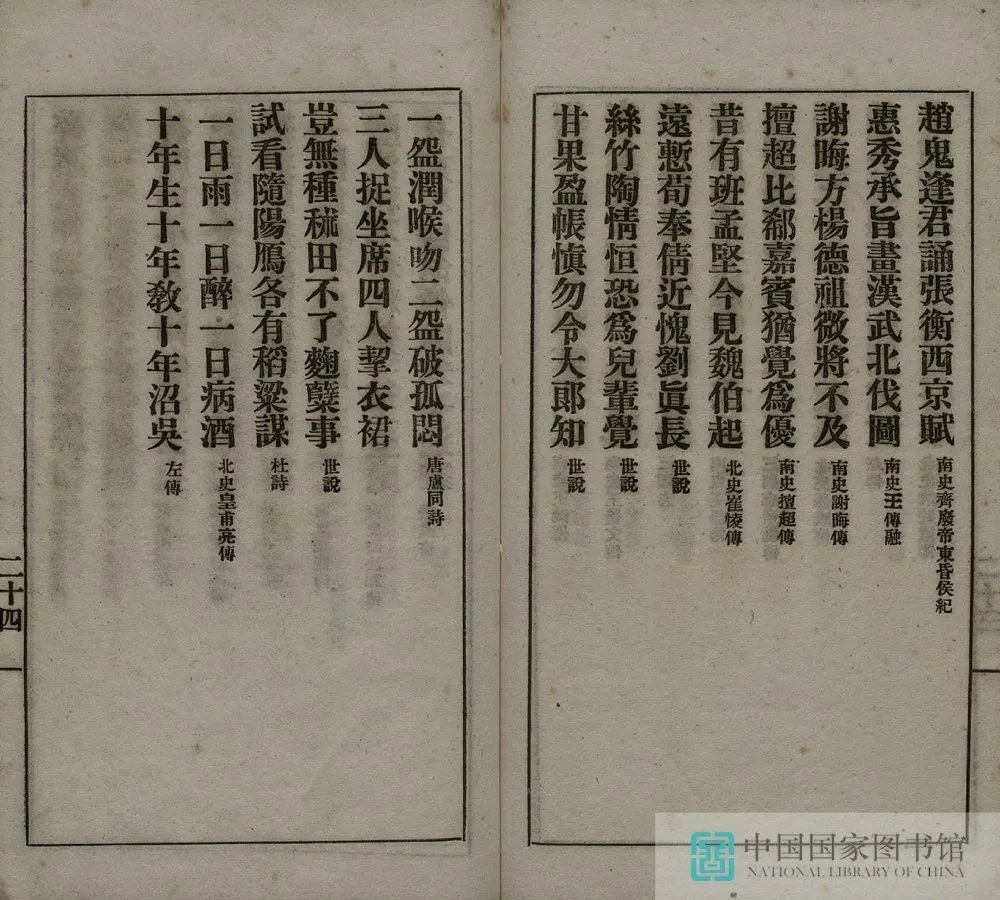 趙鬼逢君誦張衡西京賦 南史齊廢帝東昏侯紀
惠秀承旨畫漢武北伐圖 南史王傳融
謝晦方楊德祖微將不及 南史謝晦傳
擅超比郗嘉賓猶覺爲優 南史擅超傳
昔有班孟堅今見魏伯起 北史崔㥄傳
遠慙荀奉倩近愧劉眞長 世説
絲竹陶情恒恐爲兒輩覺 世説
甘果盈帳愼勿令大郎知 世説
一盌潤喉吻二盌破孤悶 唐盧同詩
三人捉坐席四人挈衣裙
豈無種秫田不了麴糱事 世説
試看隨陽鴈各有稻粱謀 杜詩
一日雨一日醉一日病酒 北史皇甫亮傳
十年生十年教十年沼吳 左傳
二十四
中国国家图书馆
NATIONAL LIBRARY OF CHINA